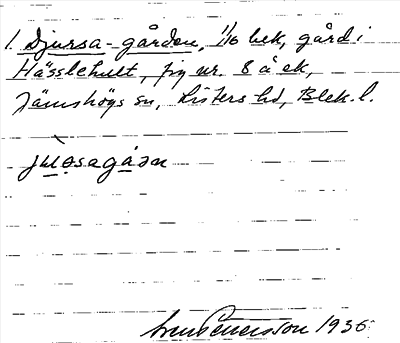 1. Djursa-gården, 1/16 bek, gård i
Hässlehult, fig nr. 8 å ek,
Jämshögs sn, Listers hd, Blek. l.
Pettersson 1936